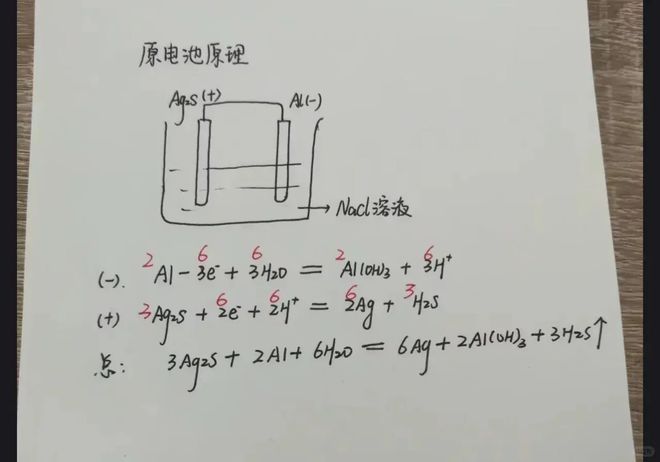 原电池原理
Ag₂S(+) Al(-)
NaCl溶液
2 6 6 2 6
(-). Al - 3e⁻ + 3H₂O = Al(OH)₃ + 3H⁺
3 6 6 6 3
(+) Ag₂S + 2e⁻ + 2H⁺ = 2Ag + H₂S
总: 3Ag₂S + 2Al + 6H₂O = 6Ag + 2Al(OH)₃ + 3H₂S↑